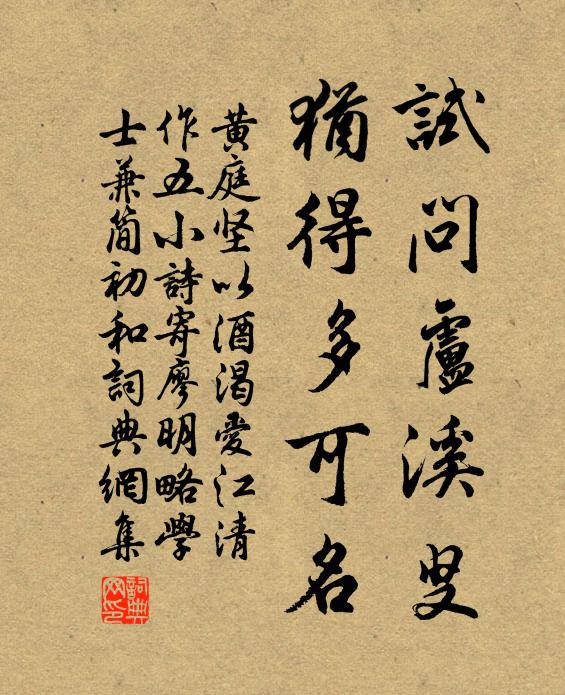 試問盧溪叟
猶得多可名
黃庭坚以酒渴愛江清
作五小詩寄廖明略學
士兼简初和詞典網集
詞典
网印